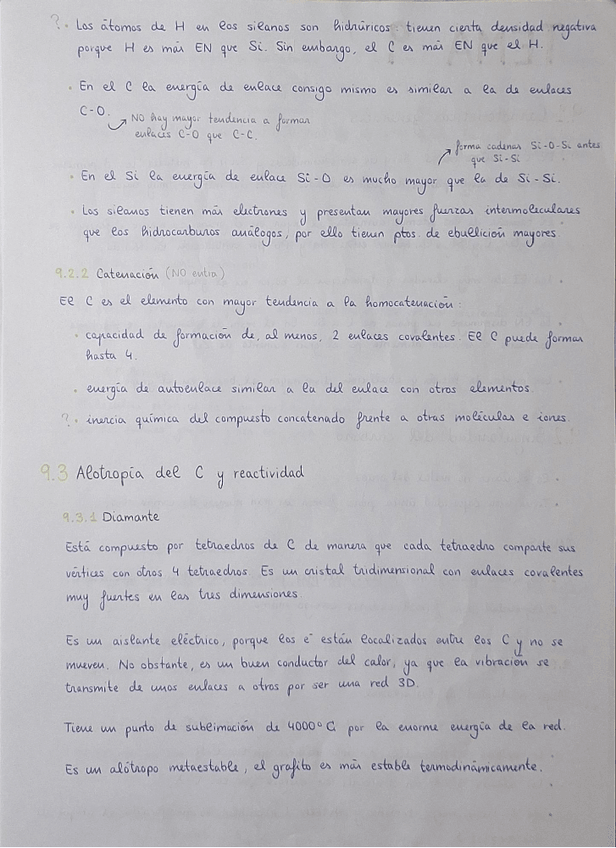 ?· Los átomos de H en los silanos son hidrúricos: tienen cierta densidad negativa
porque H es más EN que Si. Sin embargo, el C es más EN que el H.
· En el C la energía de enlace consigo mismo es similar a la de enlaces
C-O.
NO hay mayor tendencia a formar
enlaces C-O que C-C.
forma cadenas Si-O-Si antes
que Si-Si
· En el Si la energía de enlace Si-O es mucho mayor que la de Si-Si.
· Los silanos tienen más electrones y presentan mayores fuerzas intermoleculares
que los hidrocarburos análogos, por ello tienen ptos. de ebullición mayores
9.2.2 Catenación (NO entra)
El C es el elemento con mayor tendencia a la homocatenación:
· capacidad de formación de, al menos, 2 enlaces covalentes. El C puede formar
hasta 4.
· energía de autoenlace similar a la del enlace con otros elementos.
?· inercia química del compuesto concatenado frente a otras moléculas e iones.
9.3 Alotropía del C y reactividad
9.3.1 Diamante
Está compuesto por tetraedros de C de manera que cada tetraedro comparte sus
vértices con otros 4 tetraedros. Es un cristal tridimensional con enlaces covalentes
muy fuertes en las tres dimensiones
Es un aislante eléctrico, porque los e⁻ están localizados entre los C y no se
mueven. No obstante, es un buen conductor del calor, ya que la vibración se
transmite de unos enlaces a otros por ser una red 3D.
Tiene un punto de sublimación de 4000°C por la enorme energía de la red.
Es un alótropo metaestable, el grafito es más estable termodinámicamente.